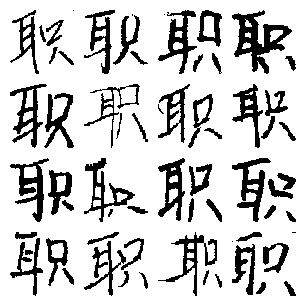 职职职职
职职职职
职职职职
职职职职